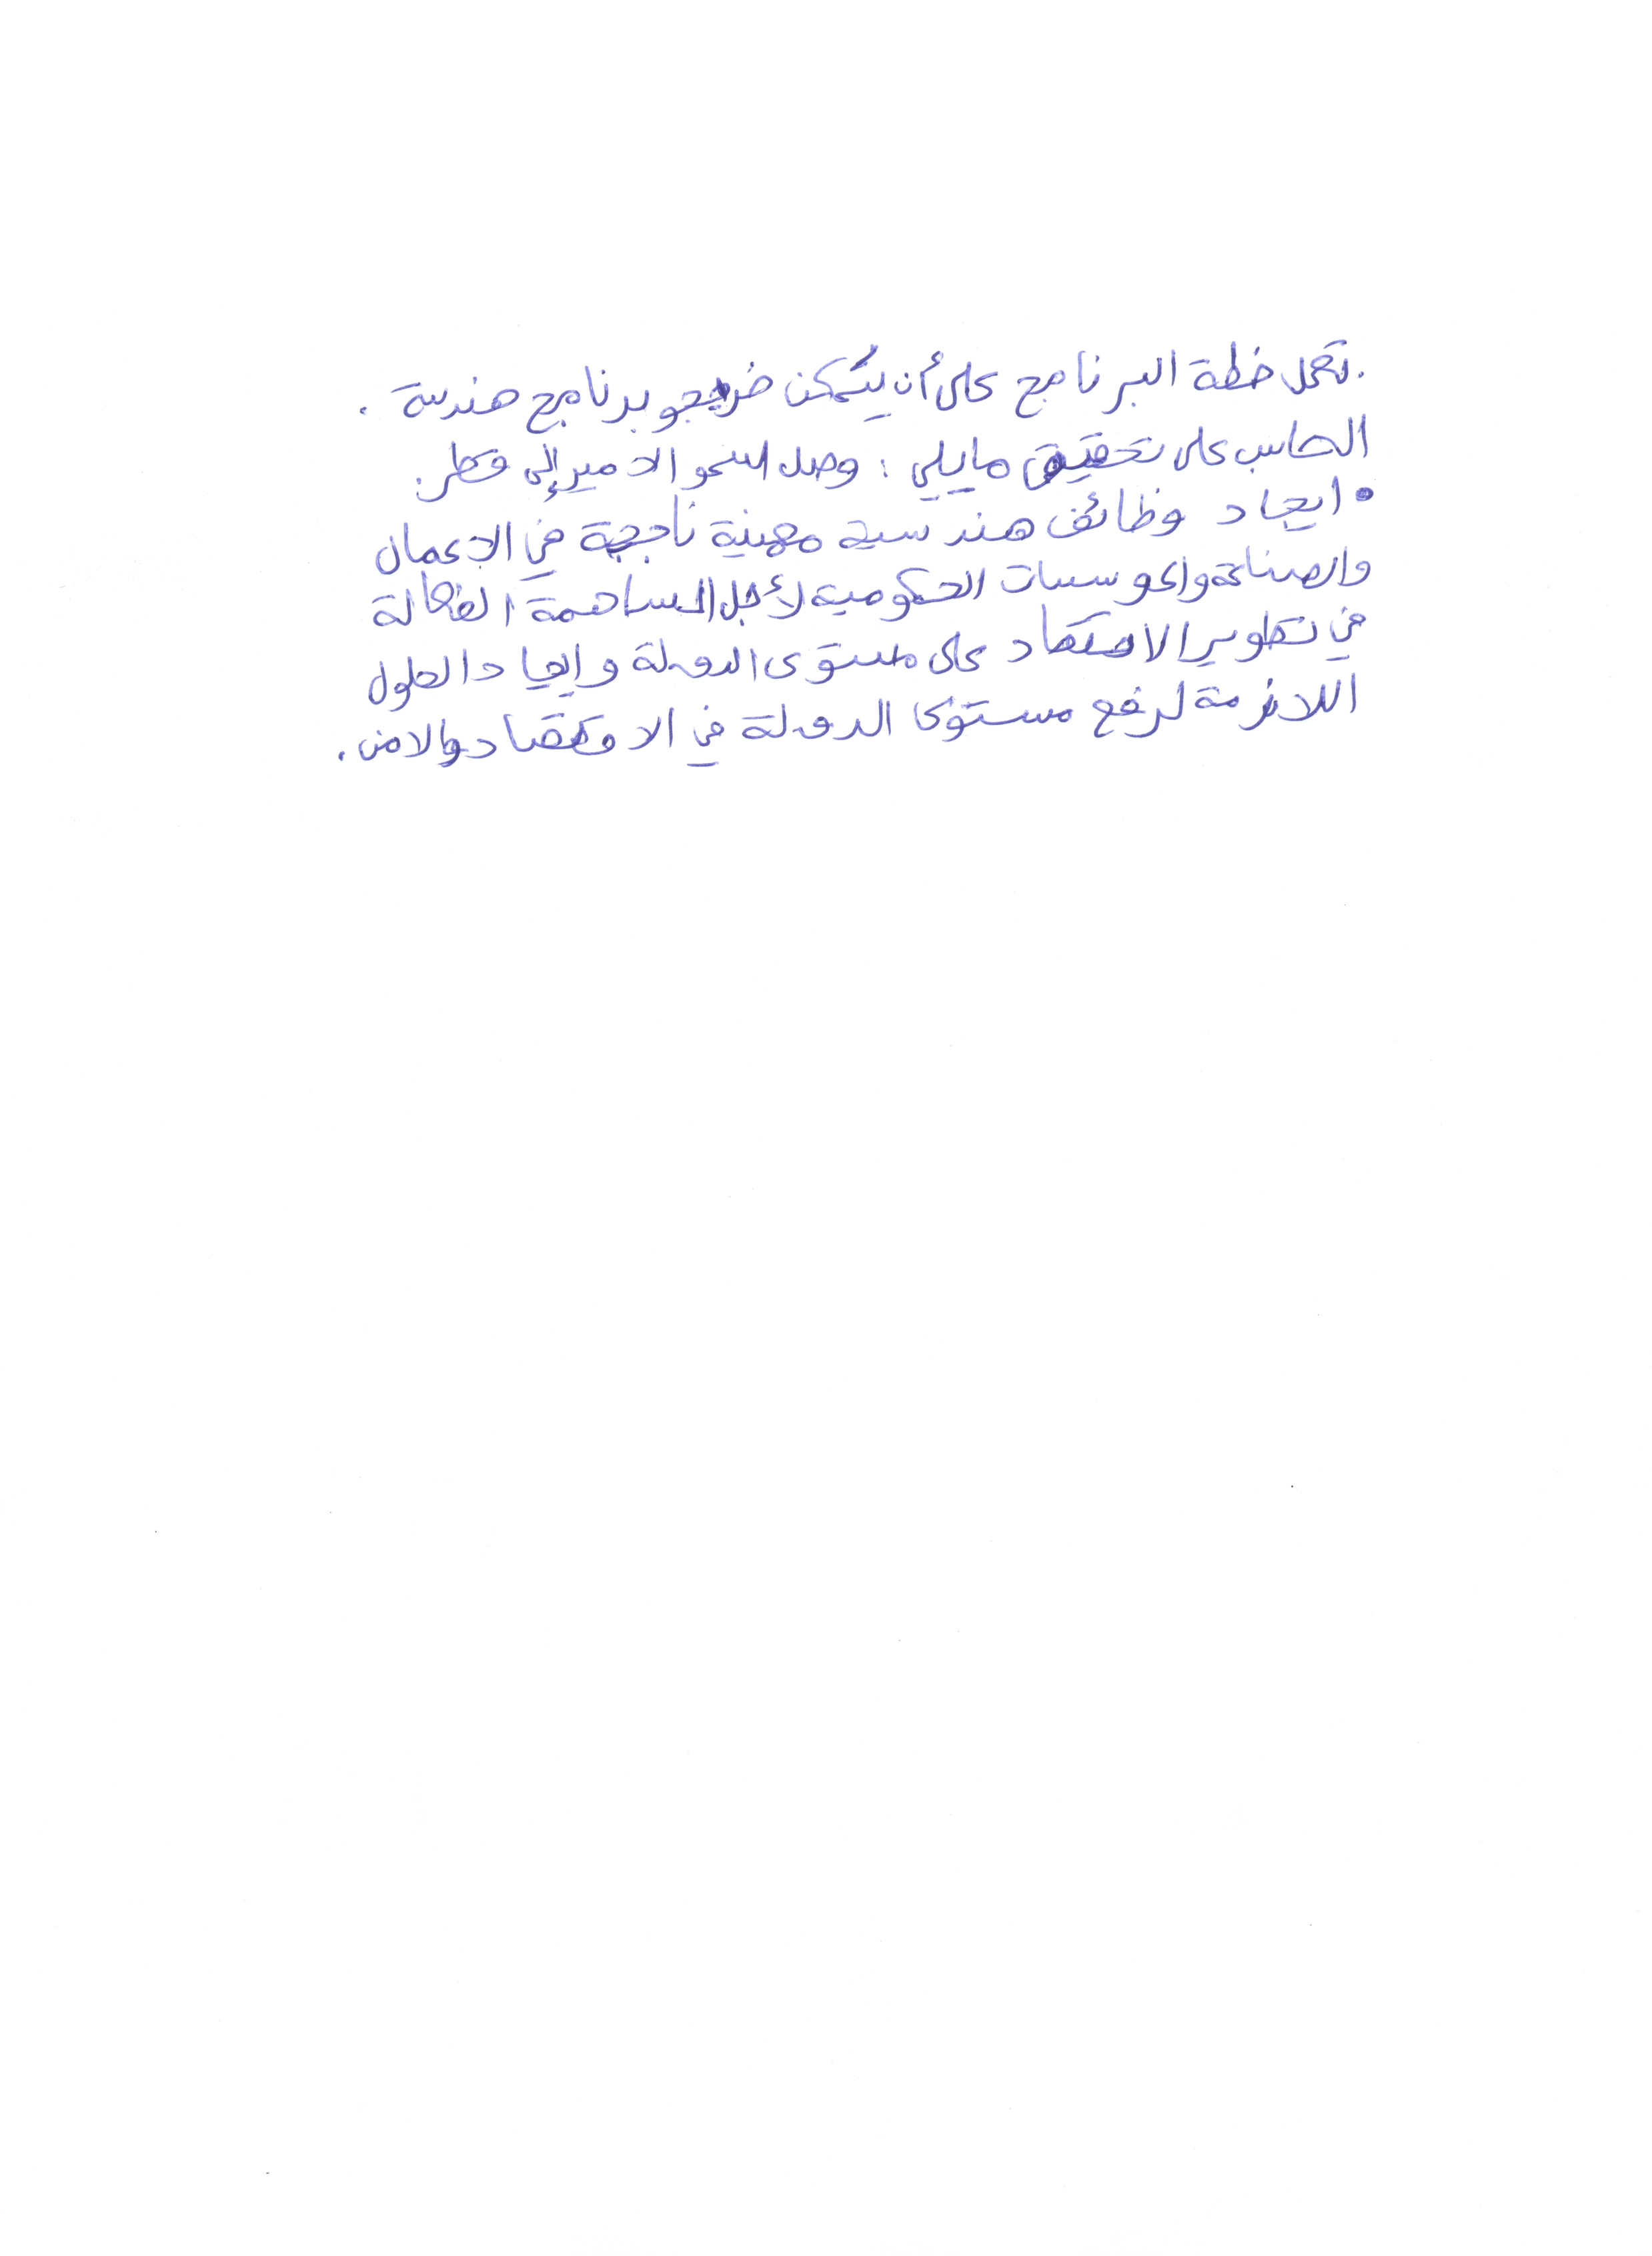 .تعمل خطة البرنامج على أن يتمكن خريجو برنامج هندسة .
الحاسب على تحقيق مايلي : وصل السمو الامير إلى قطر.
• ايجاد وظائف هندسية مهنية ناجحة في الاعمال
والصناعة والموسسات الحكومية لأجل المساهمة الفعالة
في تطوير الاقتصاد على مستوى الدولة وإيجاد الحلول
اللازمة لرفع مستوى الدولة في الاقتصاد والامن .